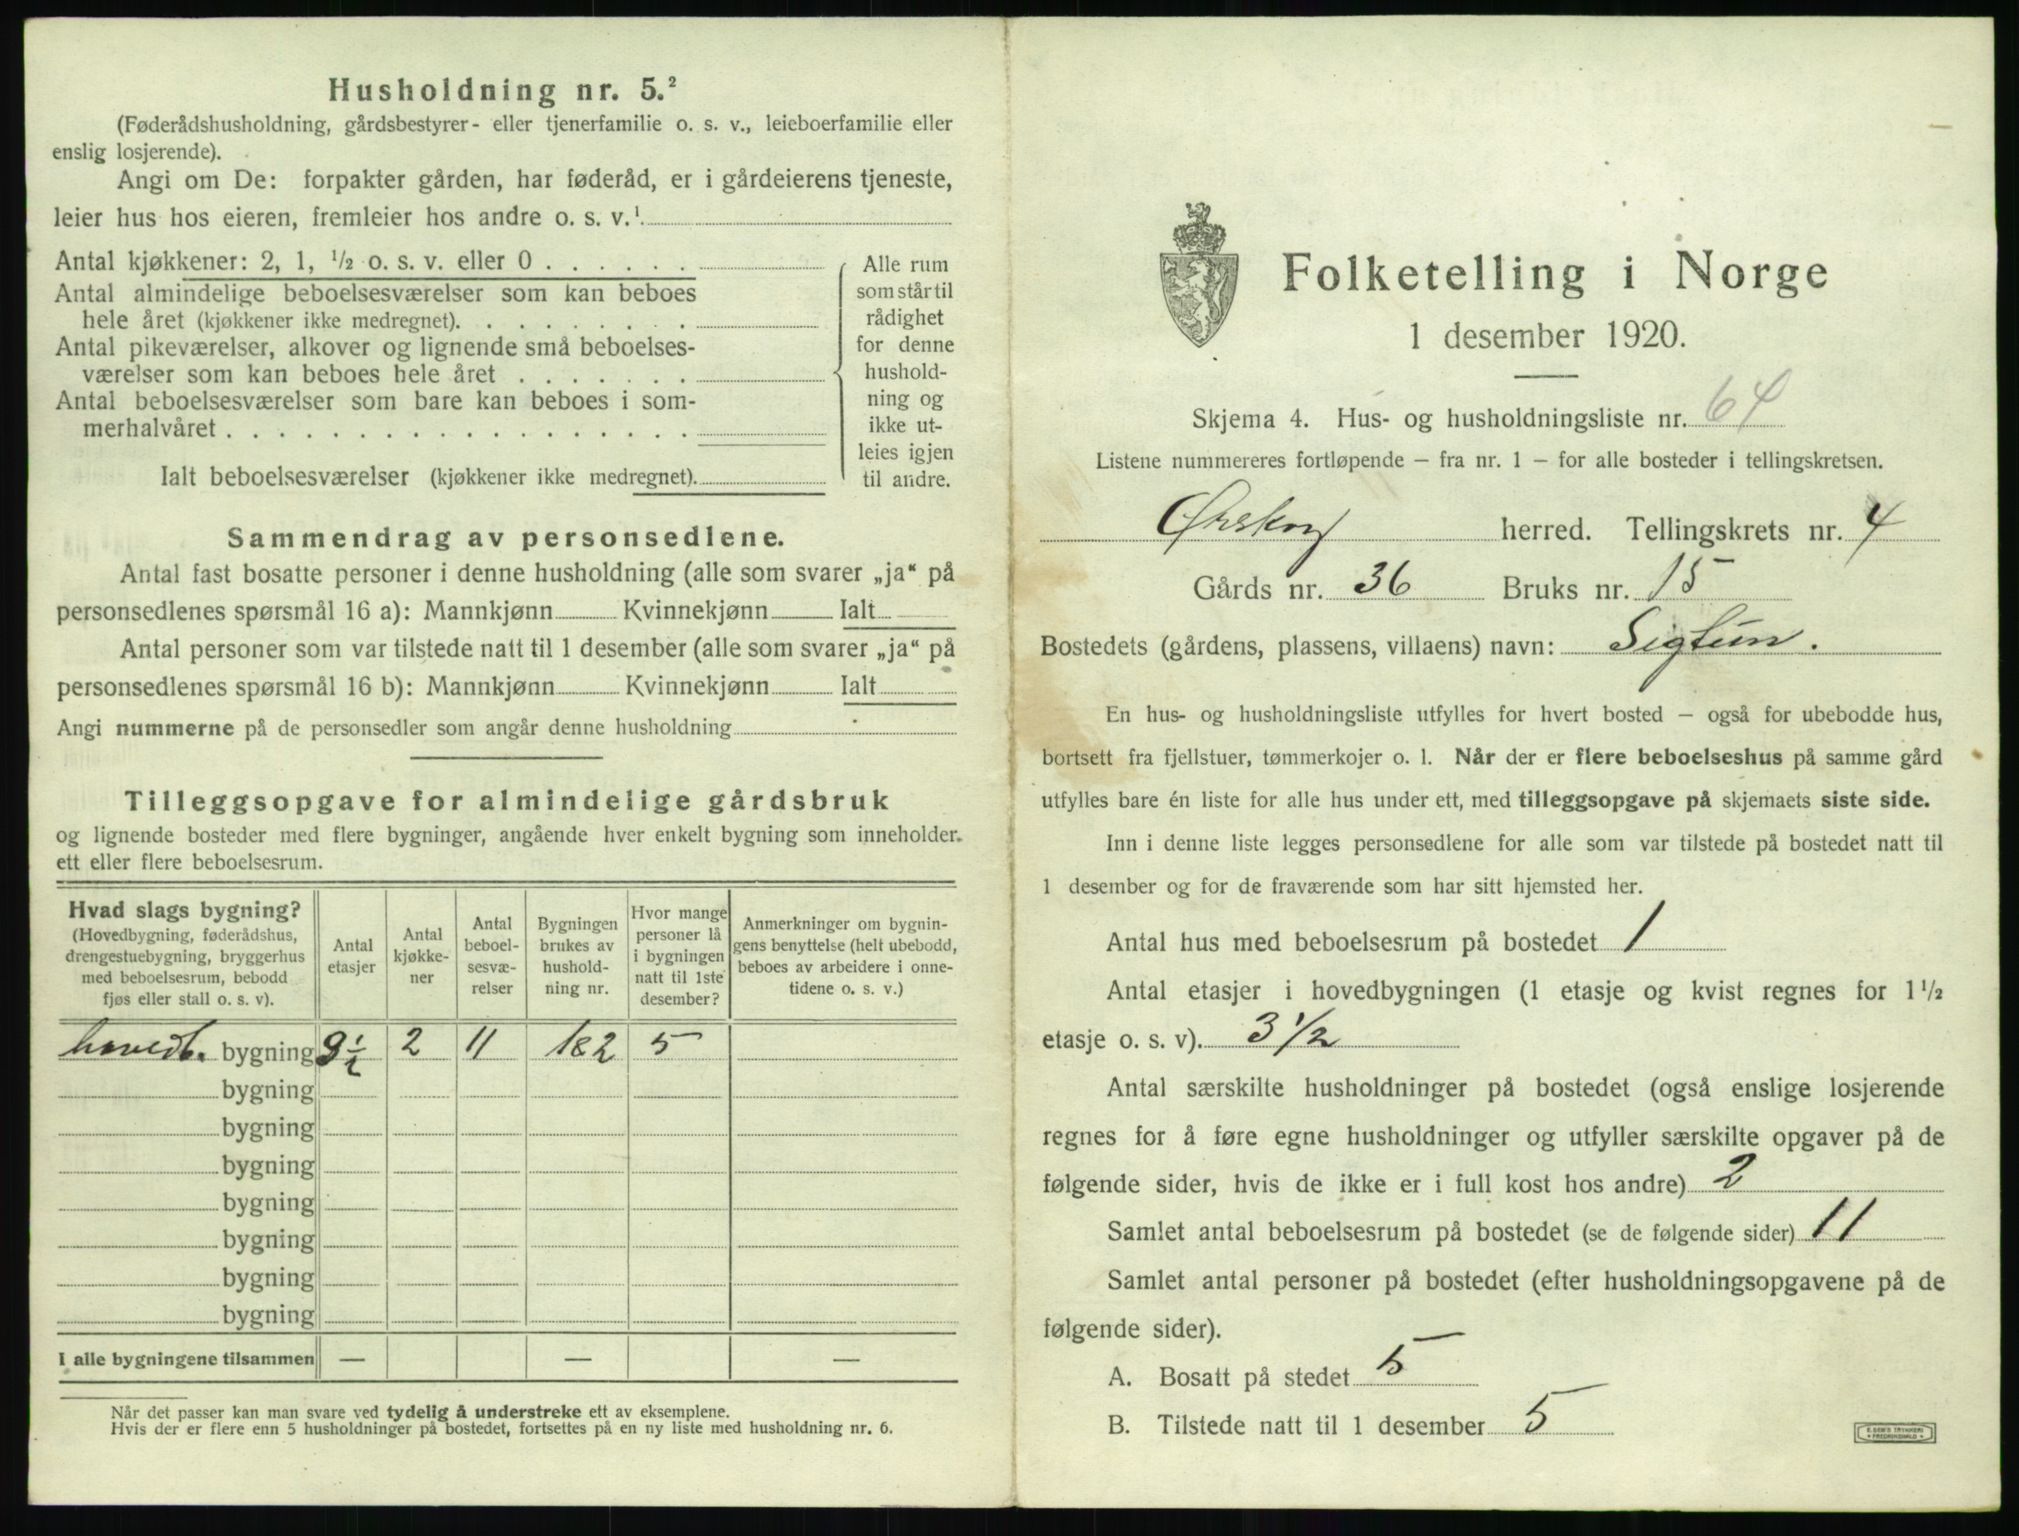 Husholdning nr. 5.²
(Føderådshusholdning, gårdsbestyrer- eller tjenerfamilie o. s. v., leieboerfamilie eller
enslig losjerende).
Angi om De: forpakter gården, har føderåd, er i gårdeierens tjeneste,
leier hus hos eieren, fremleier hos andre o. s. v.¹
Antal kjøkkener: 2, 1, ½ o. s. v. eller 0 . . . . . .
Antal almindelige beboelsesværelser som kan beboes
hele året (kjøkkener ikke medregnet). . . . . . . . .
Antal pikeværelser, alkover og lignende små beboelses-
værelser som kan beboes hele året . . . . . . .
Antal beboelsesværelser som bare kan beboes i som-
merhalvåret . . . . . . . . . . . . . . . . . .
Ialt beboelsesværelser (kjøkkener ikke medregnet).
Alle rum
som står til
rådighet
for denne
hushold-
ning og
ikke ut-
leies igjen
til andre.
Sammendrag av personsedlene.
Antal fast bosatte personer i denne husholdning (alle som svarer „ja“ på
personsedlenes spørsmål 16 a): Mannkjønn Kvinnekjønn Ialt
Antal personer som var tilstede natt til 1 desember (alle som svarer „ja“ på
personsedlenes spørsmål 16 b): Mannkjønn Kvinnekjønn Ialt
Angi nummerne på de personsedler som angår denne husholdning
Tilleggsopgave for almindelige gårdsbruk
og lignende bosteder med flere bygninger, angående hver enkelt bygning som inneholder
ett eller flere beboelsesrum.
Hvad slags bygning?
(Hovedbygning, føderådshus,
drengestuebygning, bryggerhus
med beboelsesrum, bebodd
fjøs eller stall o. s. v).
Antal
etasjer
Antal
kjøkke-
ner
Antal
beboel-
sesvæ-
relser
Bygningen
brukes av
hushold-
ning nr.
Hvor mange
personer lå
i bygningen
natt til 1ste
desember?
Anmerkninger om bygnin-
gens benyttelse (helt ubebodd,
beboes av arbeidere i onne-
tidene o. s. v.)
hovedb. bygning 3½ 2 11 1&2 5
bygning
bygning
bygning
bygning
bygning
bygning
bygning
I alle bygningene tilsammen — — —
Når det passer kan man svare ved tydelig å understreke ett av eksemplene.
Hvis der er flere enn 5 husholdninger på bostedet, fortsettes på en ny liste med husholdning nr. 6.
Folketelling i Norge
1 desember 1920.
Skjema 4. Hus- og husholdningsliste nr. 64
Listene nummereres fortløpende – fra nr. 1 – for alle bosteder i tellingskretsen.
Ørskog herred. Tellingskrets nr. 4
Gårds nr. 36 Bruks nr. 15
Bostedets (gårdens, plassens, villaens) navn: Sigtun.
En hus- og husholdningsliste utfylles for hvert bosted – også for ubebodde hus,
bortsett fra fjellstuer, tømmerkojer o. l. Når der er flere beboelseshus på samme gård
utfylles bare én liste for alle hus under ett, med tilleggsopgave på skjemaets siste side.
Inn i denne liste legges personsedlene for alle som var tilstede på bostedet natt til
1 desember og for de fraværende som har sitt hjemsted her.
Antal hus med beboelsesrum på bostedet 1
Antal etasjer i hovedbygningen (1 etasje og kvist regnes for 1½
etasje o. s. v). 3½
Antal særskilte husholdninger på bostedet (også enslige losjerende
regnes for å føre egne husholdninger og utfyller særskilte opgaver på de
følgende sider, hvis de ikke er i full kost hos andre) 2
Samlet antal beboelsesrum på bostedet (se de følgende sider) 11
Samlet antal personer på bostedet (efter husholdningsopgavene på de
følgende sider).
A. Bosatt på stedet 5
B. Tilstede natt til 1 desember 5